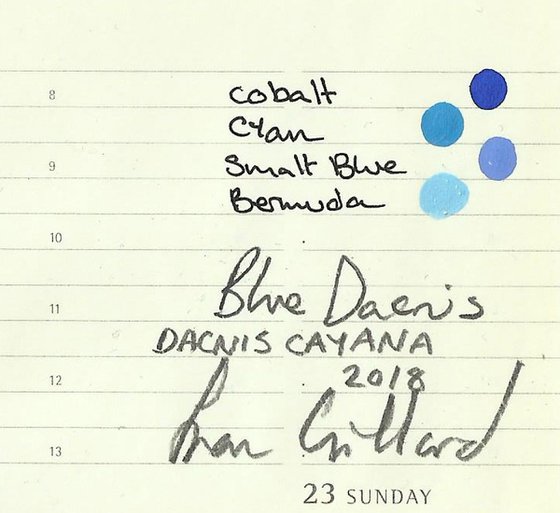 8 cobalt
Cyan
9 Smalt Blue
Bermuda
10
Blue Dacnis
11
DACNIS CAYANA
12 2018
Fran Gillard
13
23 SUNDAY